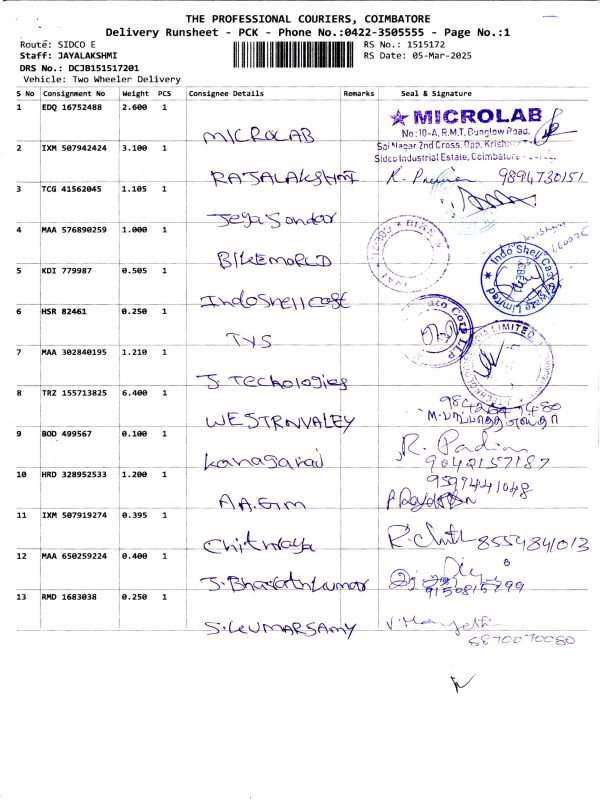 THE PROFESSIONAL COURIERS, COIMBATORE
Delivery Runsheet - PCK - Phone No.:0422-3505555 - Page No.:1
Route: SIDCO E RS No.: 1515172
Staff: JAYALAKSHMI RS Date: 05-Mar-2025
DRS No.: DCJB151517201
Vehicle: Two Wheeler Delivery
S No Consignment No Weight PCS Consignee Details Remarks Seal & Signature
1 EDQ 16752488 2.600 1
MICROLAB
★ MICROLAB
No:10-A, R.M.T. Bunglow Road,
Sai Nagar 2nd Cross, Opp. Krishna
Sidco Industrial Estate, Coimbatore
2 IXM 507942424 3.100 1
RAJALAKSHMI 9894730151
3 TCG 41562045 1.105 1
4 MAA 576890259 1.000 1
5 KDI 779987 0.505 1
Indoshellcast
Indo Shell Cast Private Limited
6 HSR 82461 0.250 1
TVS
7 MAA 302840195 1.210 1
J. Techologies
8 TRZ 155713825 6.400 1
WESTRNVALEY
9 BOD 499567 0.100 1
kanagaraj R. Padian
9042157187
10 HRD 328952533 1.200 1
A.A.Gim
9597441048
11 IXM 507919274 0.395 1
8554841013
12 MAA 650259224 0.400 1
J. Bharathkumar
9150815299
13 RMD 1683038 0.250 1
S.KUMARSAMY